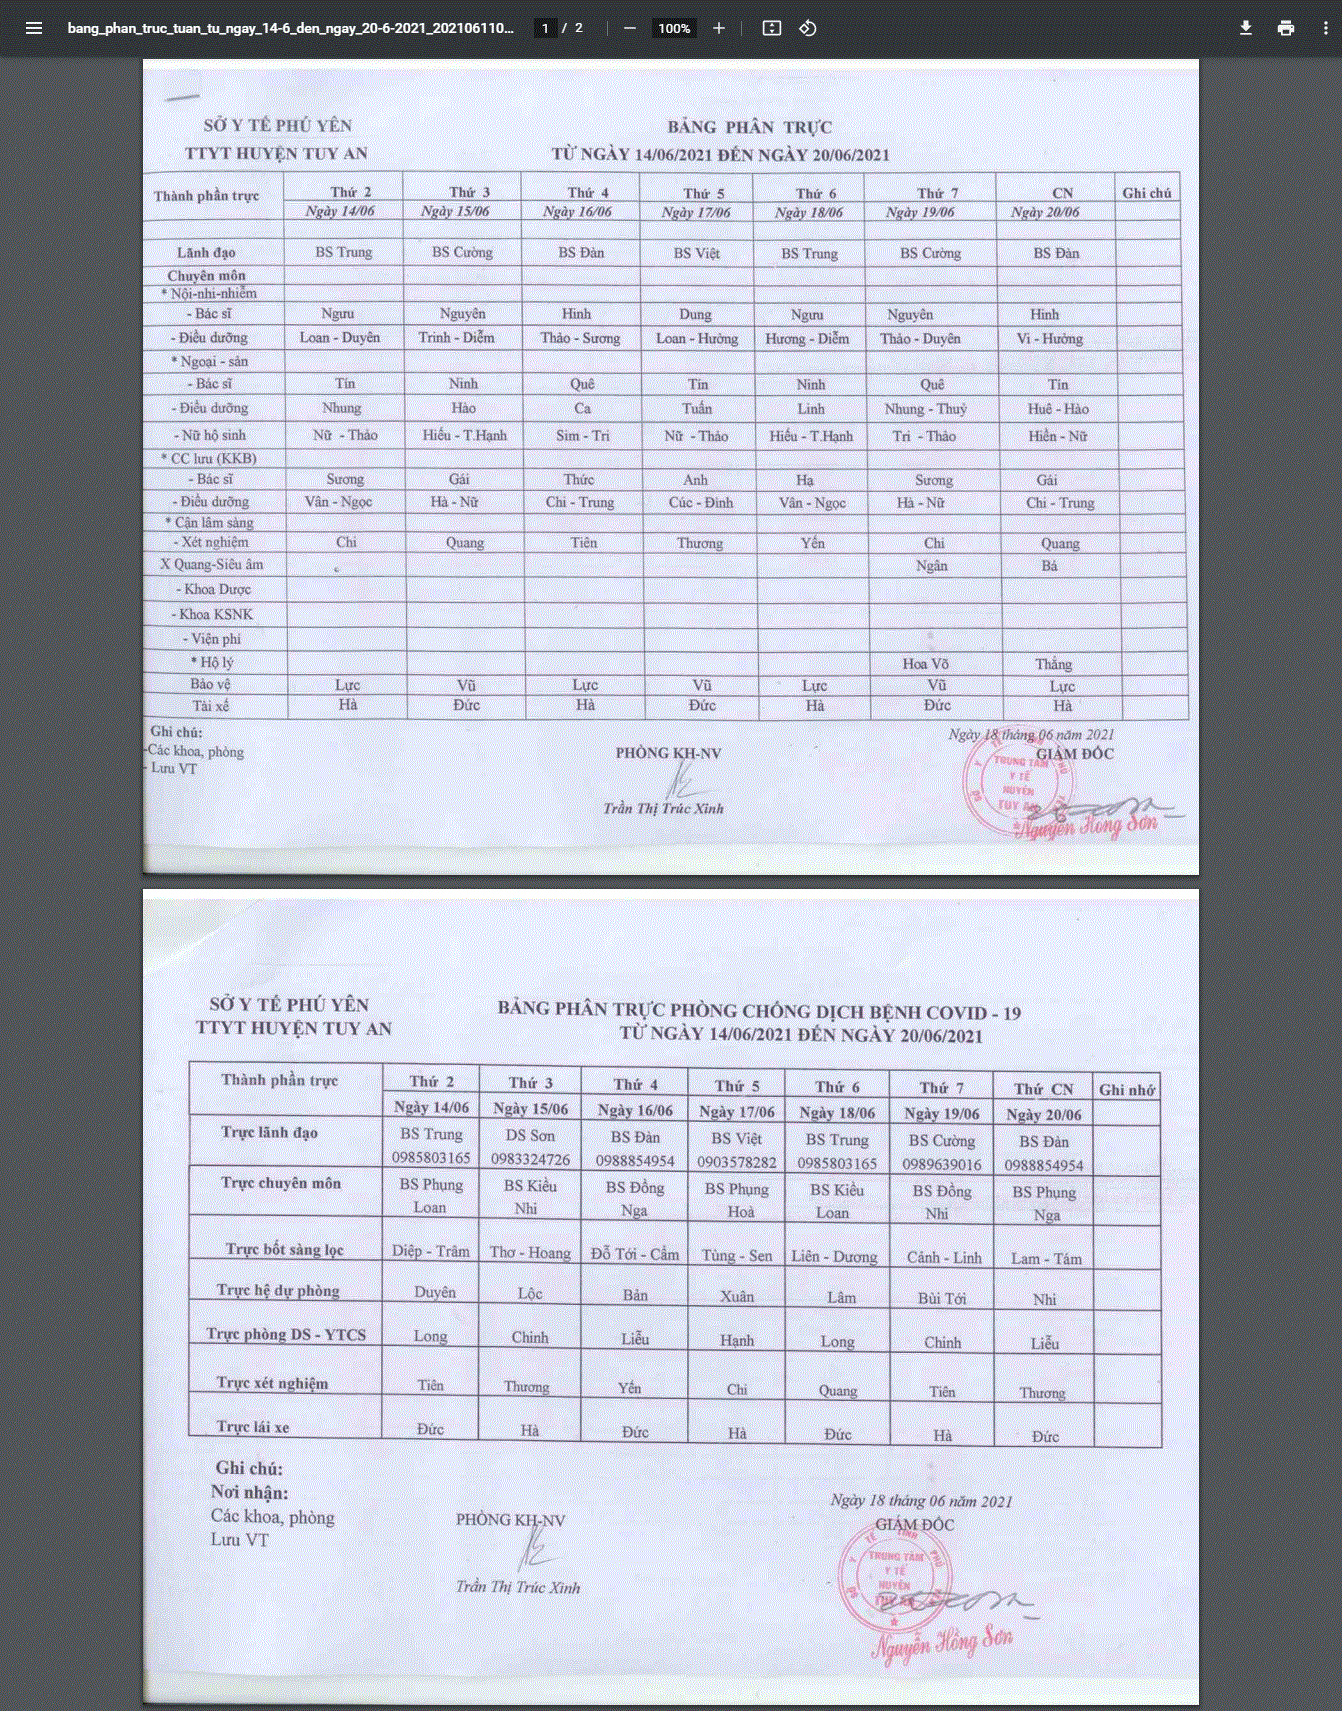 bang_phan_truc_tuan_tu_ngay_14-6_den_ngay_20-6-2021_202106110... 1 / 2 100%
SỞ Y TẾ PHÚ YÊN BẢNG PHÂN TRỰC
TTYT HUYỆN TUY AN TỪ NGÀY 14/06/2021 ĐẾN NGÀY 20/06/2021
Thành phần trực Thứ 2 Thứ 3 Thứ 4 Thứ 5 Thứ 6 Thứ 7 CN Ghi chú
Ngày 14/06 Ngày 15/06 Ngày 16/06 Ngày 17/06 Ngày 18/06 Ngày 19/06 Ngày 20/06
Lãnh đạo BS Trung BS Cường BS Đàn BS Việt BS Trung BS Cường BS Đàn
Chuyên môn
* Nội-nhi-nhiễm
- Bác sĩ Ngưu Nguyên Hinh Dung Ngưu Nguyên Hinh
- Điều dưỡng Loan - Duyên Trinh - Diễm Thảo - Sương Loan - Hường Hương - Diễm Thảo - Duyên Vi - Hường
* Ngoại - sản
- Bác sĩ Tín Ninh Quê Tín Ninh Quê Tín
- Điều dưỡng Nhung Hào Ca Tuấn Linh Nhung - Thuỷ Huê - Hào
- Nữ hộ sinh Nữ - Thảo Hiếu - T.Hạnh Sim - Tri Nữ - Thảo Hiếu - T.Hạnh Tri - Thảo Hiền - Nữ
* CC lưu (KKB)
- Bác sĩ Sương Gái Thức Anh Hạ Sương Gái
- Điều dưỡng Vân - Ngọc Hà - Nữ Chi - Trung Cúc - Đinh Vân - Ngọc Hà - Nữ Chi - Trung
* Cận lâm sàng
- Xét nghiệm Chi Quang Tiên Thương Yến Chi Quang
X Quang-Siêu âm Ngân Bá
- Khoa Dược
- Khoa KSNK
- Viện phí
* Hộ lý Hoa Võ Thắng
Bảo vệ Lực Vũ Lực Vũ Lực Vũ Lực
Tài xế Hà Đức Hà Đức Hà Đức Hà
Ghi chú: Ngày 18 tháng 06 năm 2021
-Các khoa, phòng PHÒNG KH-NV GIÁM ĐỐC
- Lưu VT
TRUNG TÂM
Y TẾ
HUYỆN
TUY AN
Trần Thị Trúc Xinh
Nguyễn Hồng Sơn
SỞ Y TẾ PHÚ YÊN BẢNG PHÂN TRỰC PHÒNG CHỐNG DỊCH BỆNH COVID - 19
TTYT HUYỆN TUY AN TỪ NGÀY 14/06/2021 ĐẾN NGÀY 20/06/2021
Thành phần trực Thứ 2 Thứ 3 Thứ 4 Thứ 5 Thứ 6 Thứ 7 Thứ CN Ghi nhớ
Ngày 14/06 Ngày 15/06 Ngày 16/06 Ngày 17/06 Ngày 18/06 Ngày 19/06 Ngày 20/06
Trực lãnh đạo BS Trung DS Sơn BS Đàn BS Việt BS Trung BS Cường BS Đàn
0985803165 0983324726 0988854954 0903578282 0985803165 0989639016 0988854954
Trực chuyên môn BS Phụng BS Kiều BS Đồng BS Phụng BS Kiều BS Đồng BS Phụng
Loan Nhi Nga Hoà Loan Nhi Nga
Trực bốt sàng lọc Diệp - Trâm Thơ - Hoang Đỗ Tới - Cẩm Tùng - Sen Liên - Dương Cảnh - Linh Lam - Tám
Trực hệ dự phòng Duyên Lộc Bản Xuân Lâm Bùi Tới Nhi
Trực phòng DS - YTCS Long Chinh Liễu Hạnh Long Chinh Liễu
Trực xét nghiệm Tiên Thương Yến Chi Quang Tiên Thương
Trực lái xe Đức Hà Đức Hà Đức Hà Đức
Ghi chú:
Nơi nhận: Ngày 18 tháng 06 năm 2021
Các khoa, phòng PHÒNG KH-NV GIÁM ĐỐC
Lưu VT
TRUNG TÂM
Y TẾ
HUYỆN
TUY AN
Trần Thị Trúc Xinh
Nguyễn Hồng Sơn